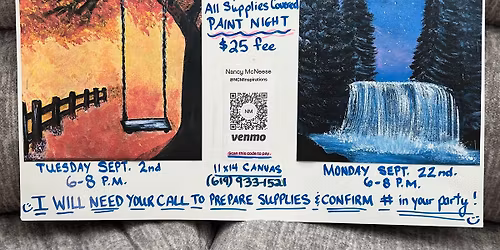 All Supplies Covered
PAINT NIGHT
$25 fee
Nancy McNeese
@NCMInspirations
NM
venmo
Scan this code to pay
TUESDAY SEPT. 2nd
6-8 P.M.
11x14 CANVAS
(614) 933-1521
MONDAY SEPT. 22nd.
6-8 P.M.
I WILL NEED YOUR CALL TO PREPARE SUPPLIES & CONFIRM # in your party!